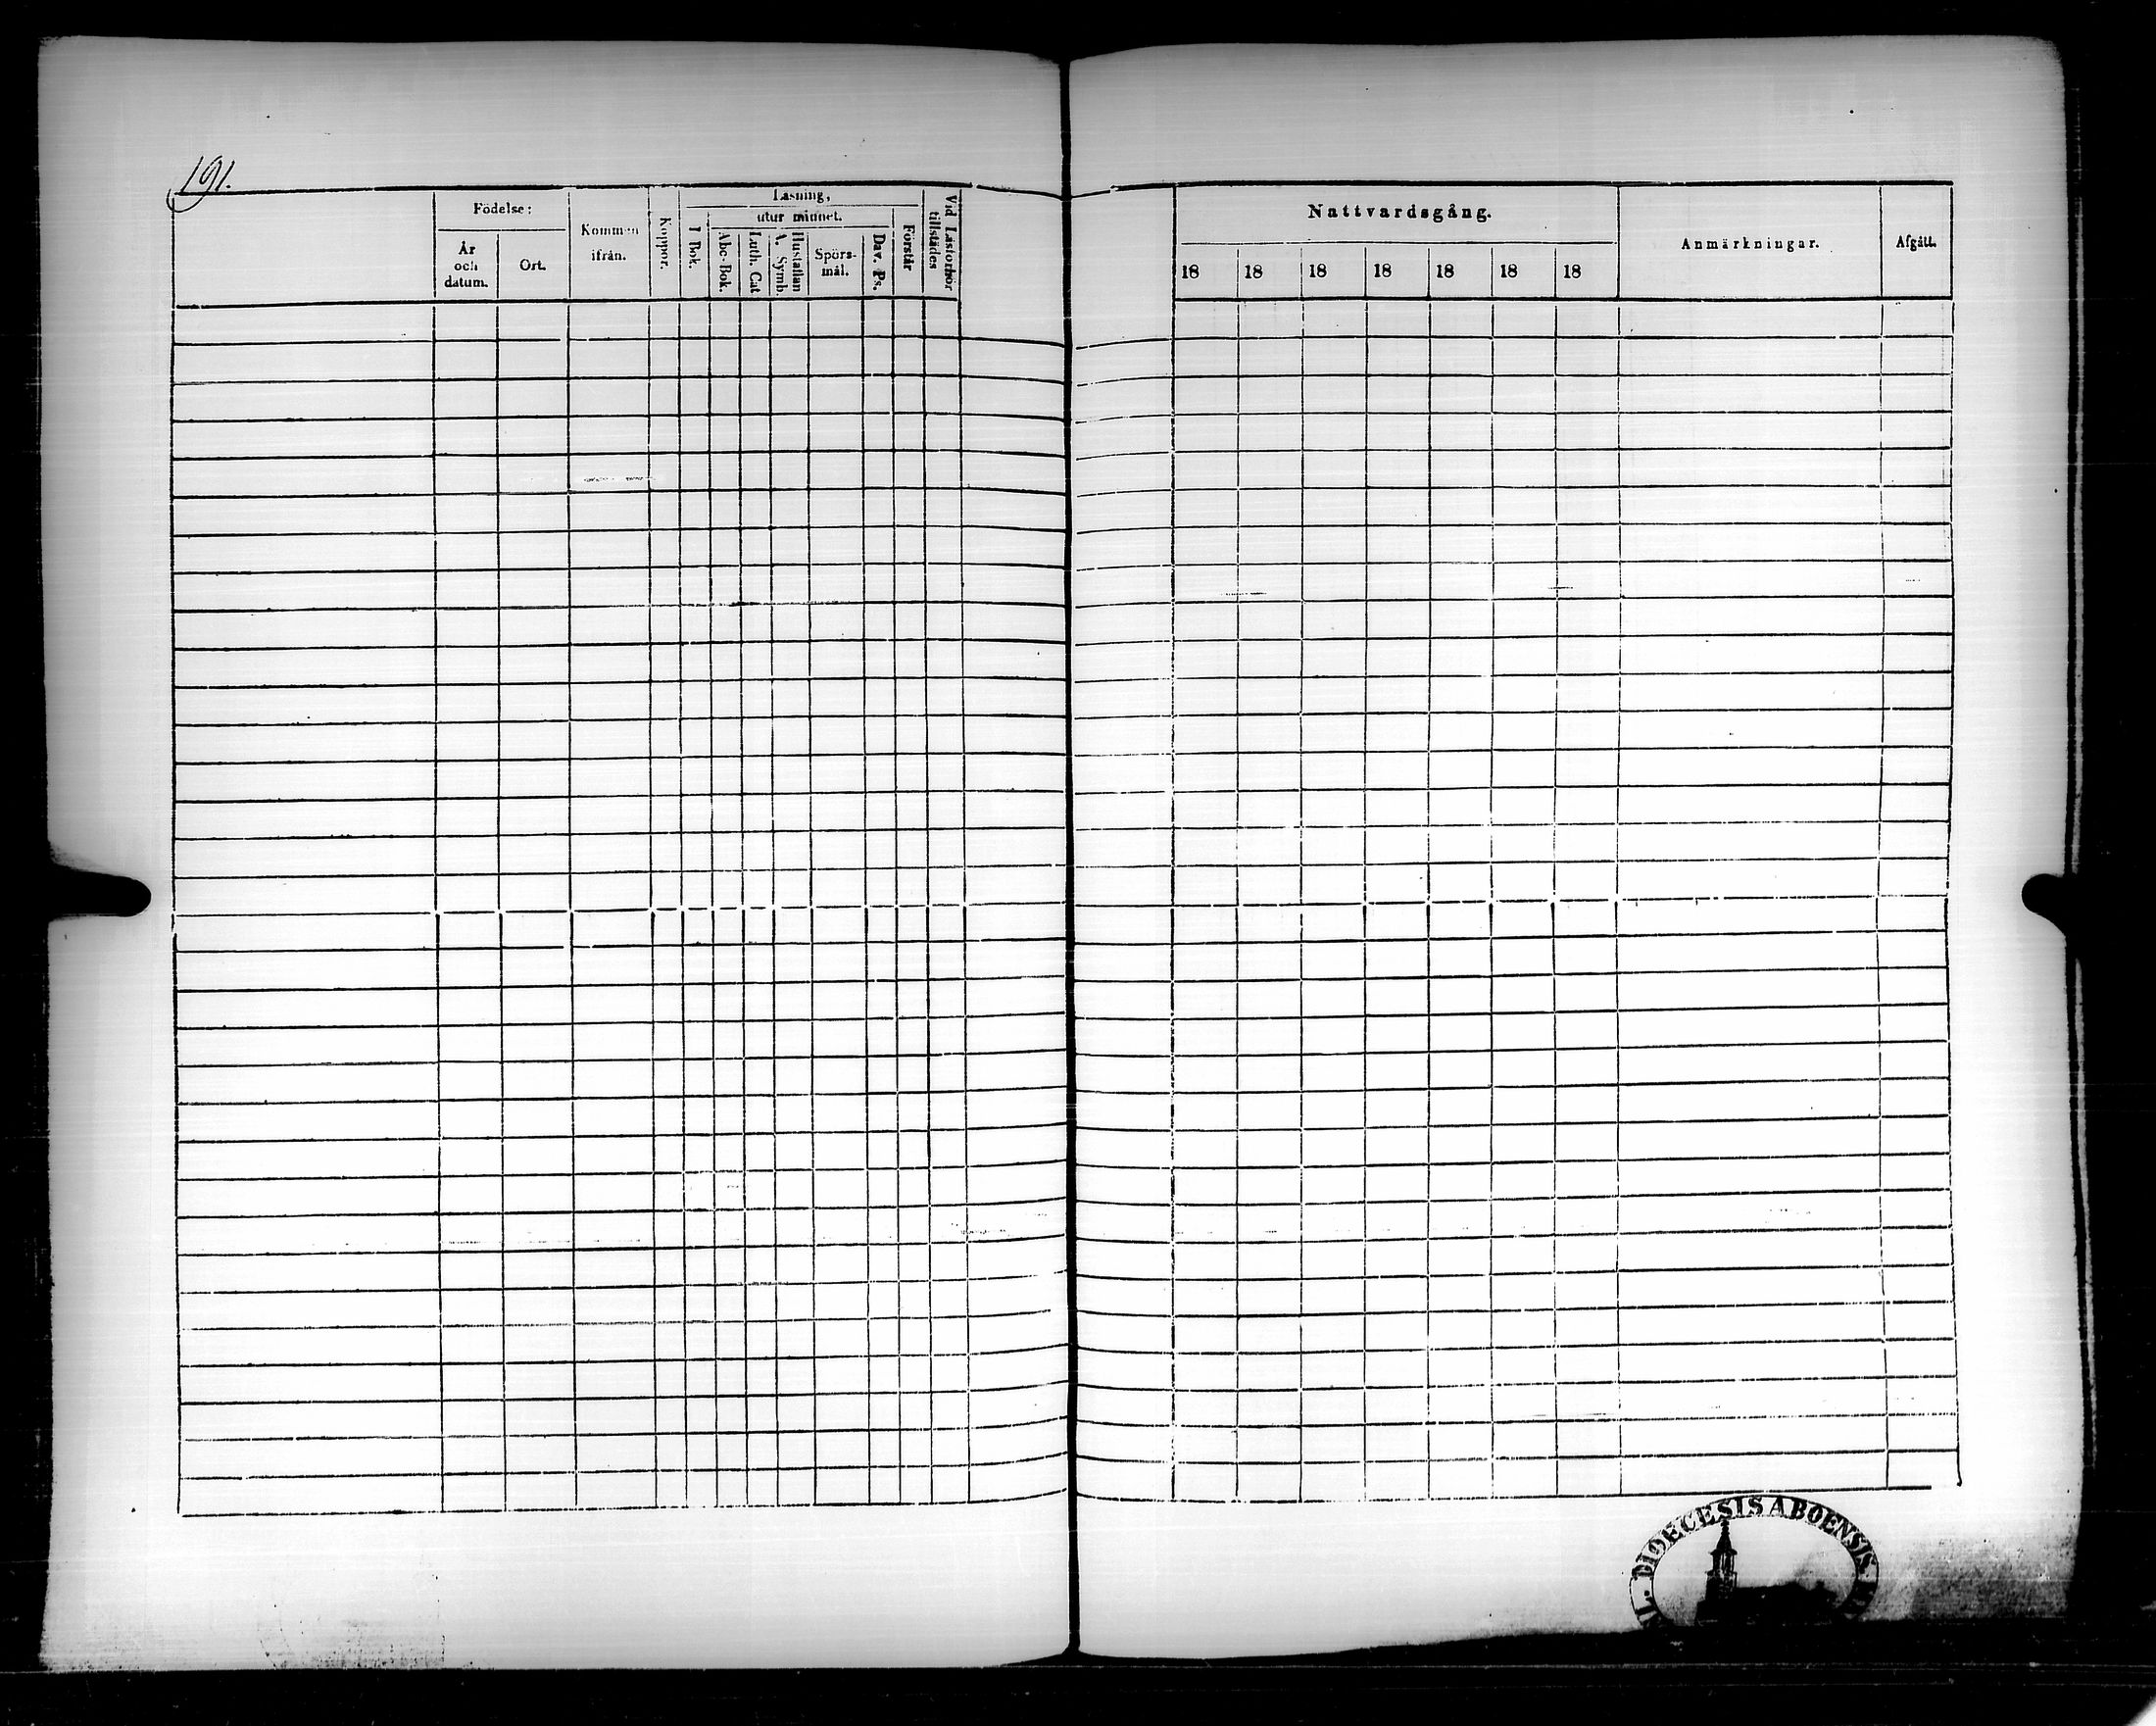 191.
Födelse:
År
och
datum.
Ort.
Kommen
ifrån.
Koppor.
Läsning,
I Bok.
utur minnet.
Abc-Bok.
Luth. Cat
A. Symb.
Hustaflan
Spörs-
mål.
Dav. Ps.
Förstår
Vid Läsförhör
tillstädes
Nattvardsgång.
18 18 18 18 18 18 18
Anmärkningar.
Afgått.
DIOECESIS ABOENSIS